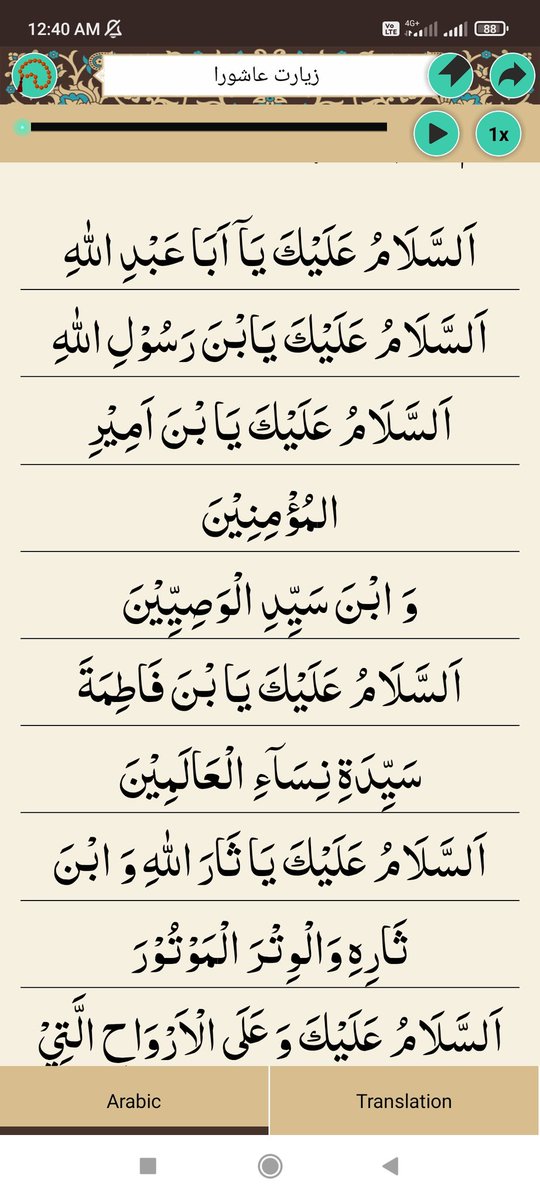 12:40 AM
Vo LTE 4G+ 88
زیارت عاشورا
1x
اَلسَّلَامُ عَلَيْكَ يَآ اَبَا عَبْدِ اللهِ
اَلسَّلَامُ عَلَيْكَ يَابْنَ رَسُوْلِ اللهِ
اَلسَّلَامُ عَلَيْكَ يَا بْنَ اَمِيْرِ
المُؤْمِنِيْنَ
وَ ابْنَ سَيِّدِ الْوَصِيِّيْنَ
اَلسَّلَامُ عَلَيْكَ يَا بْنَ فَاطِمَةَ
سَيِّدَةِ نِسَآءِ الْعَالَمِيْنَ
اَلسَّلَامُ عَلَيْكَ يَا ثَارَ اللهِ وَ ابْنَ
ثَارِهِ وَالْوِتْرَ الْمَوْتُوْرَ
اَلسَّلَامُ عَلَيْكَ وَ عَلَى الْاَرْوَاحِ الَّتِيْ
Arabic
Translation